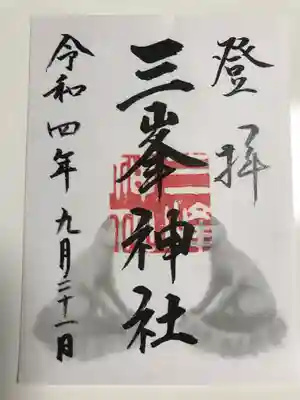 登拝
三峯神社
令和四年九月二十一日